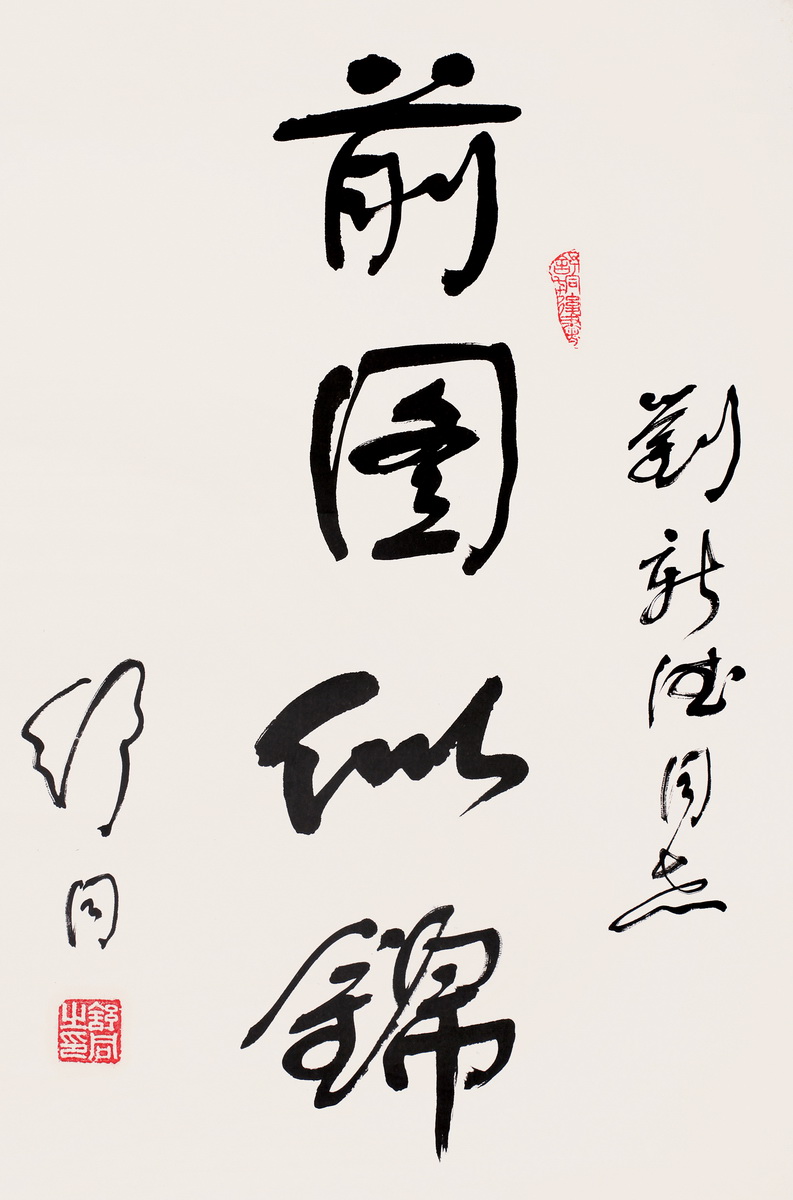 劉新德同志
前图似錦
舒同
舒同之印